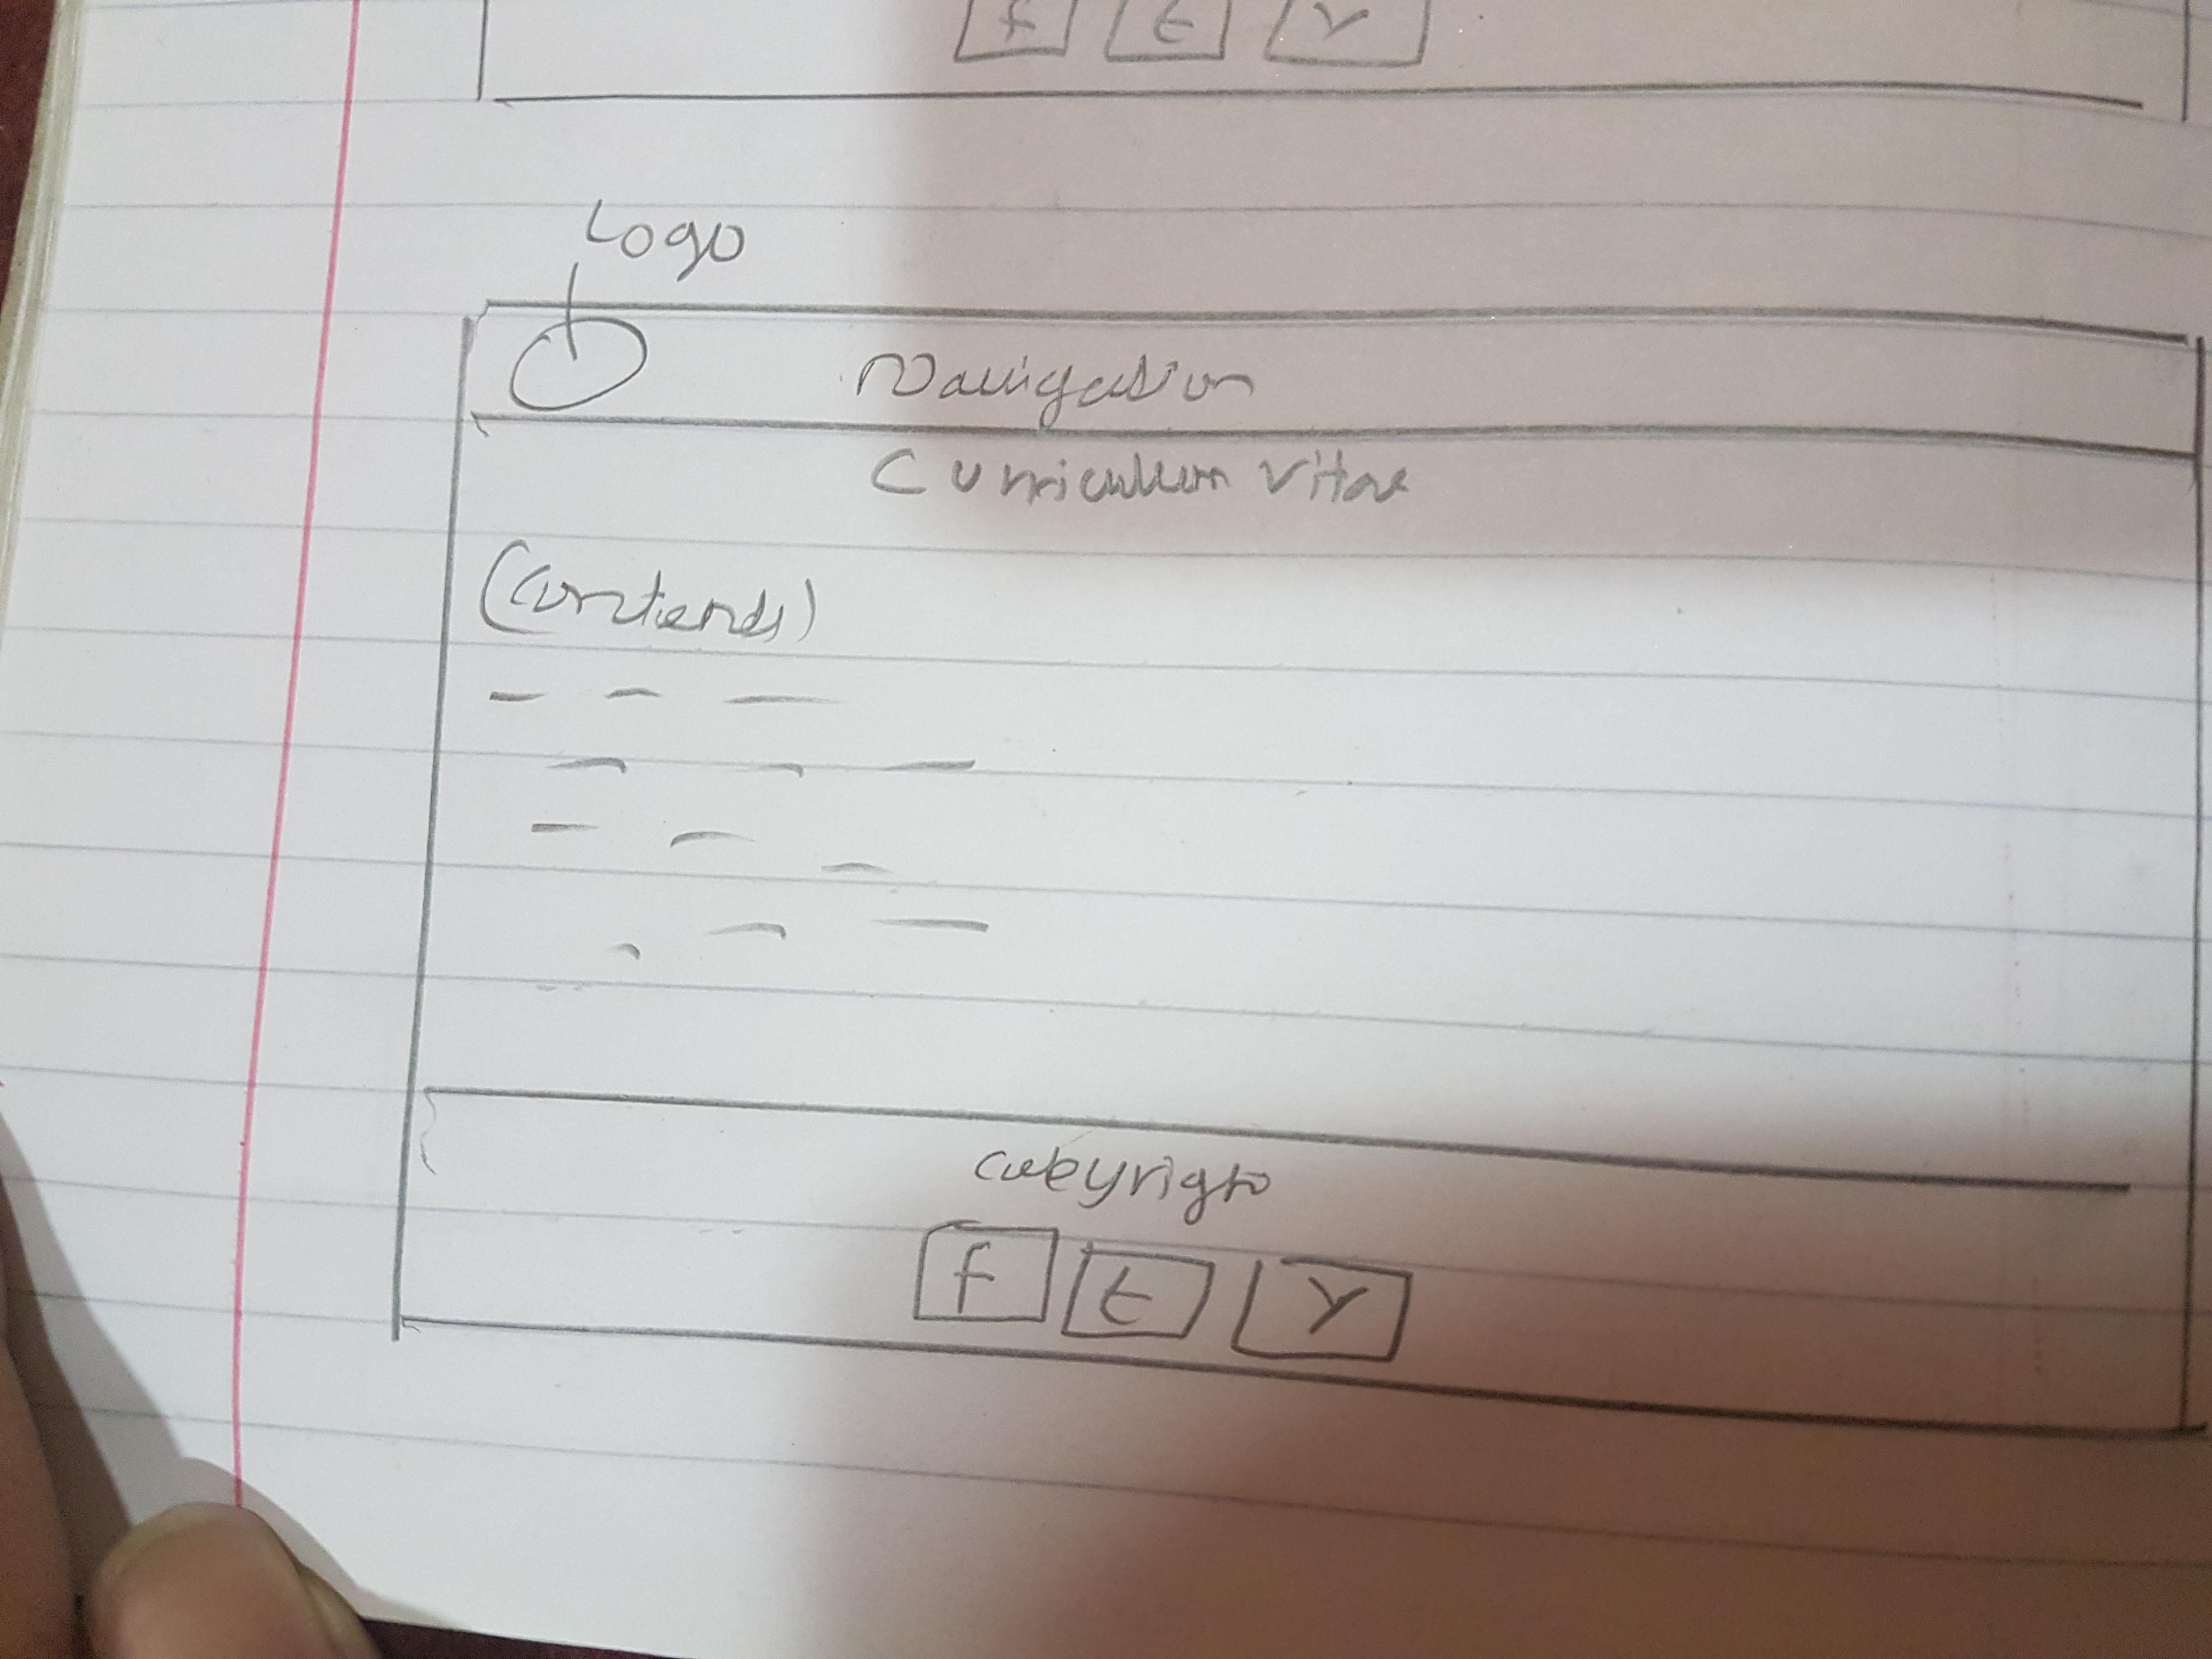 f t y
Logo
Navigation
Curriculum Vitae
(contends)
copyright
f t y